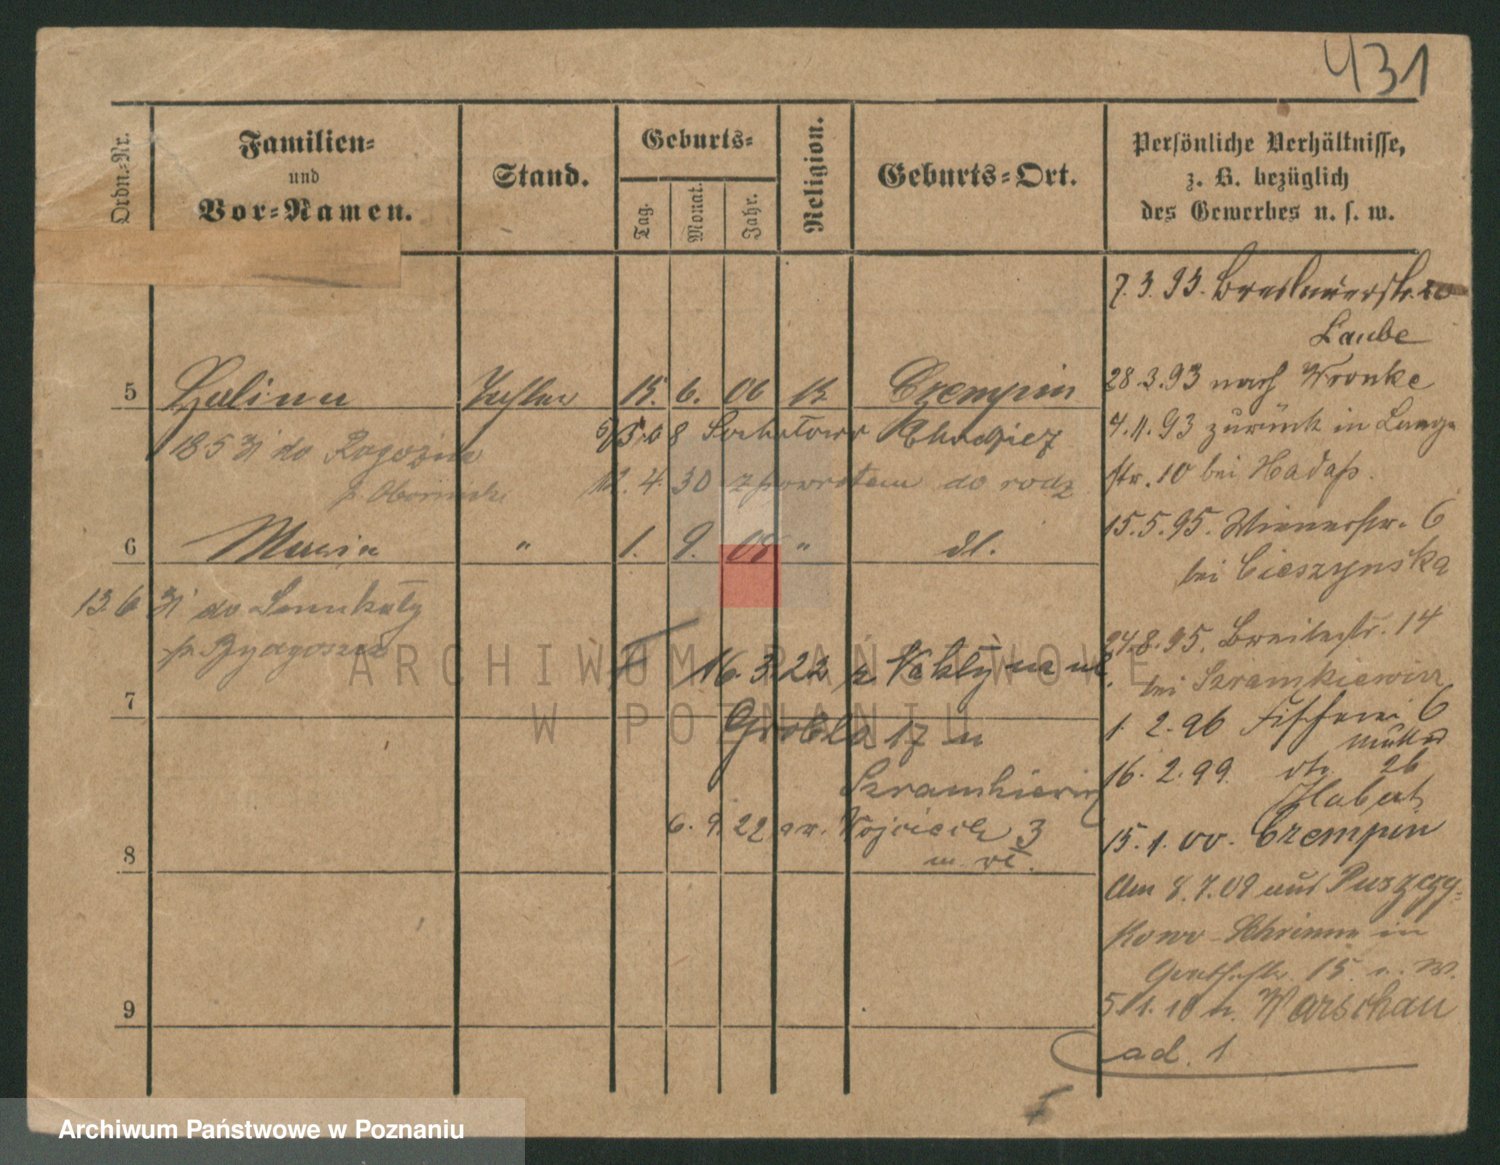 431
Ordn.-Nr.
Familien-
und
Vor-Namen.
Stand.
Geburts-
Tag.
Monat.
Jahr.
Religion.
Geburts-Ort.
Persönliche Verhältnisse,
z. B. bezüglich
des Gewerbes u. s. w.
7.3.93. Breslauerstr. 20
Laube
28.3.93 nach Wronke
4.4.93 zurück in Lange
str. 10 bei Hadaß.
15.5.95. Wienerstr. 6
bei Cieszynska
24.8.95. Breitestr. 14
bei Szramkiewicz
1. 2.96 Fischerei 6
16. 2.99. 26
15.1.00. Czempin
Am 8.7.09 aus
in
15
5.1.10 n. Warschau
ad. 1
5 Halina Tochter 15. 6. 06 k Czempin
18 5 31 do
12.4.30 z powrotem do rodz
6 Maria " 1. 9. 08 " dl.
13.6 31 do
p. Bydgoszcz
16.3.22
7
Grobla 17 u
Szramkiewicz
6.9.22 Wojciech 3
8
9
ARCHIWUM PAŃSTWOWE
W POZNANIU
Archiwum Państwowe w Poznaniu